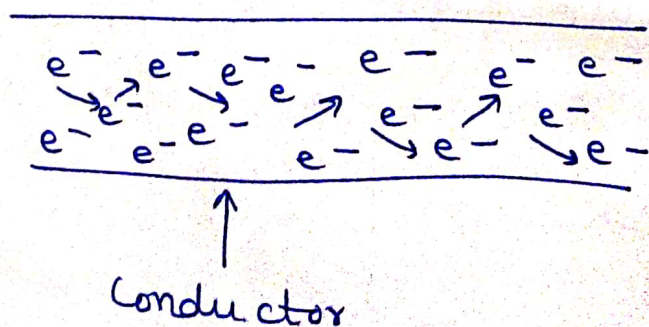 e⁻ e⁻ e⁻ e⁻ e⁻ e⁻ e⁻
e⁻ e⁻ e⁻
e⁻ e⁻ e⁻ e⁻ e⁻ e⁻
Conductor